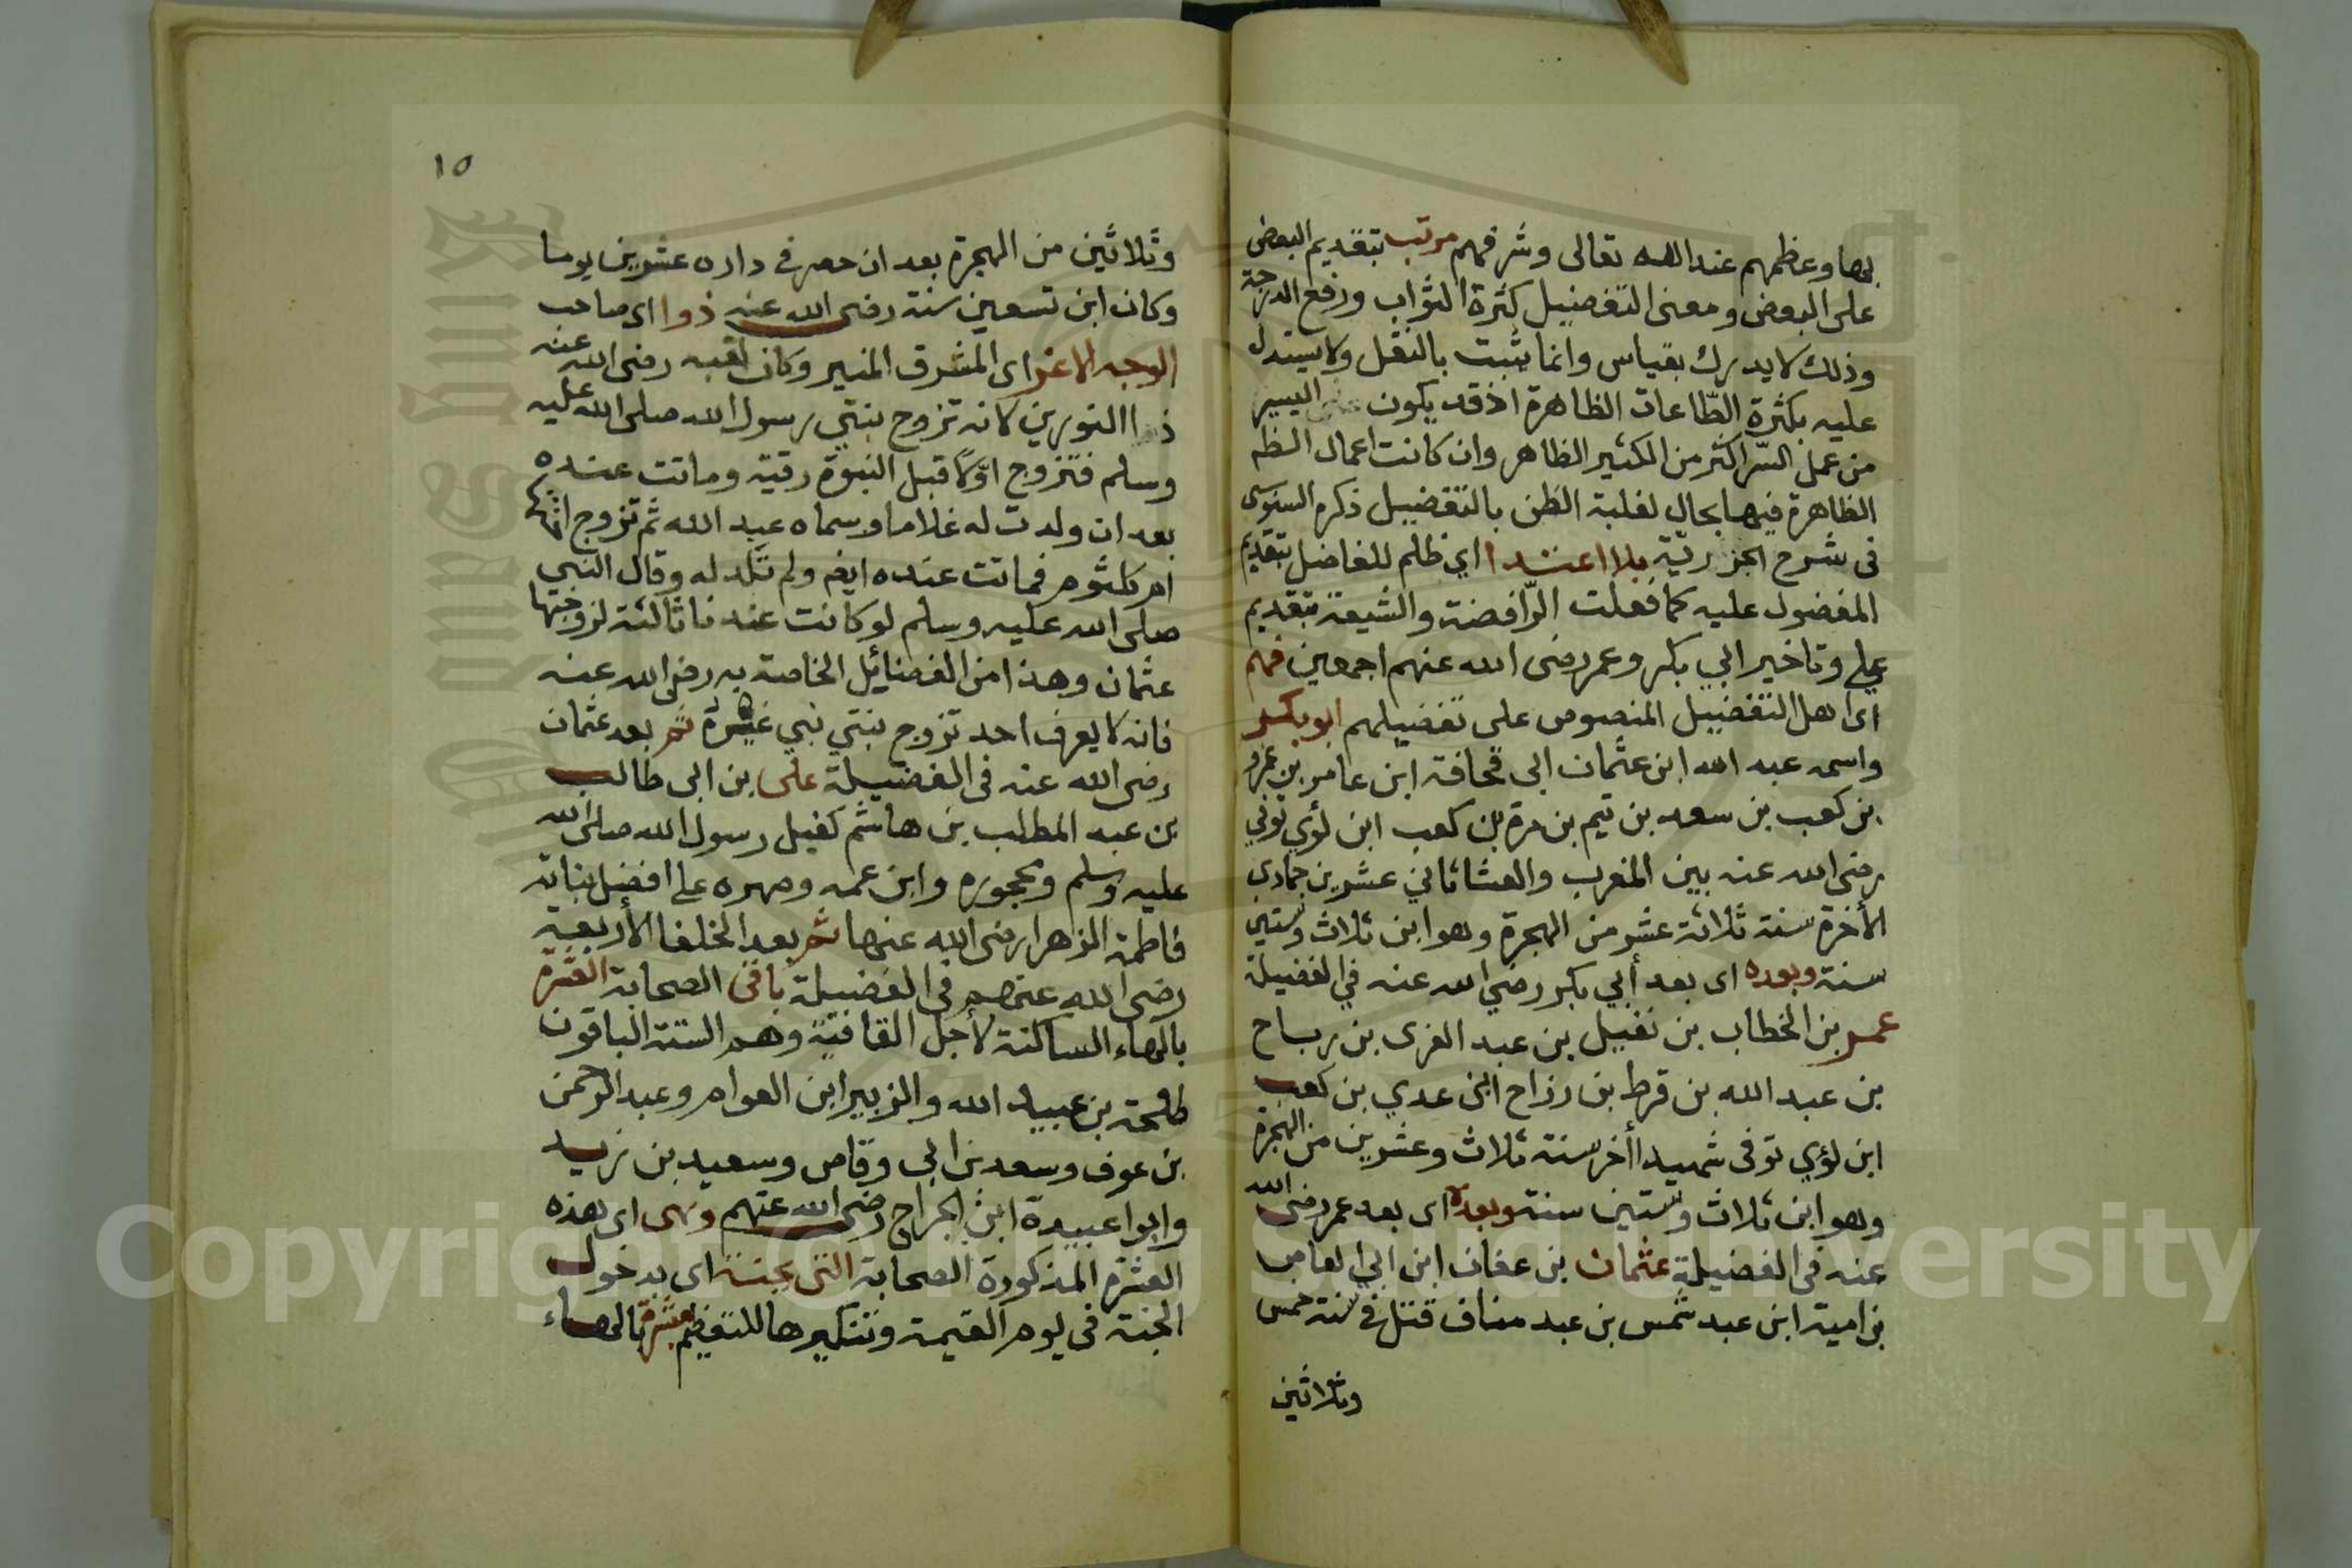 بها وعظمهم عند الله تعالى وشرفهم مرتب بتقديم البعض
على البعض ومعنى التفضيل كثرة الثواب ورفع الدرجة
وذلك لا يدرك بقياس وانما يثبت بالنقل ولا يستدل
عليه بكثرة الطّاعات الظاهرة اذ قد يكون على اليسير
من عمل السّر اكثر من الكثير الظاهر وان كانت اعمال الظه
الظاهرة فيها بحال لغلبة الظن بالتفضيل ذكره السنوسى
فى شرح الجزريّة بلا اعتدا اي ظلم للفاضل بتقديم
المفضول عليه كما فعلت الرّافضة والشيعة بتقديم
علي وتاخير ابي بكر وعمر رضى الله عنهم اجمعين فهم
اى اهل التفضيل المنصوص على تفضيلهم ابو بكر
واسمه عبد الله ابن عثمان ابى قحافة ابن عامر بن عمرو
بن كعب بن سعد بن تيم بن مرة بن كعب ابن لؤي توفي
رضى الله عنه بين المغرب والعشا ثاني عشرين جمادي
الأخرة سنة ثلاثة عشر من الهجرة وهو ابن ثلاث وستين
سنة وبعده اى بعد أبي بكر رضي الله عنه في الفضيلة
عمر بن الخطاب بن نفيل بن عبد العزى بن رباح
بن عبد الله بن قرط بن رزاح ابن عدي بن كعب
ابن لؤي توفى شهيدا أخر سنة ثلاث وعشرين من الهجرة
وهو ابن ثلاث وستين سنة وبعده اى بعد عمر رضى الله
عنه فى الفضيلة عثمان بن عفان ابن ابي العاص
بن امية ابن عبد شمس بن عبد مناف قتل في سنة خمس
وثلاثين
١٥
وثلاثين من الهجرة بعد ان حصر في داره عشرين يوما
وكان ابن تسعين سنة رضى الله عنه ذوا اى صاحب
الوجه الاغر اى المشرق المنير وكان لقبه رضى الله عنه
ذا النورين لانه تزوج بنتي رسول الله صلى الله عليه
وسلم فتزوج اوّلا قبل النبوة رقية وماتت عنده
بعد ان ولدت له غلاما وسماه عبد الله ثم تزوج اختها
ام كلثوم فماتت عنده ايضا ولم تلد له وقال النبي
صلى الله عليه وسلم لو كانت عندنا ثالثة لزوجتها
عثمان وهذا من الفضائيل الخاصة به رضى الله عنه
فانه لا يعرف احد تزوج بنتي نبي غيره ثم بعد عثمان
رضى الله عنه فى الفضيلة على بن ابى طالب
بن عبد المطلب بن هاشم كفيل رسول الله صلى الله
عليه وسلم ومحجوره وابن عمه وصهره على افضل بناته
فاطمة الزهرا رضى الله عنها ثم بعد الخلفا الأربعة
رضى الله عنهم فى الفضيلة باقى الصحابة العشرة
بالهاء الساكنة لأجل القافية وهم الستة الباقون
طلحة بن عبيد الله والزبير ابن العوام وعبد الرحمن
بن عوف وسعد بن ابى وقاص وسعيد بن زيد
وابوا عبيدة ابن الجراح رضى الله عنهم وهى اى هذه
العشرة المذكورة الصحابة التى بجنة اى بدخول
الجنة فى يوم القيمة وتنكيرها للتفظيم مبشرة بالهاء